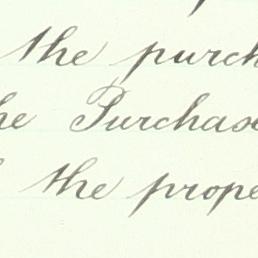 the purch
he Purchase
the prope